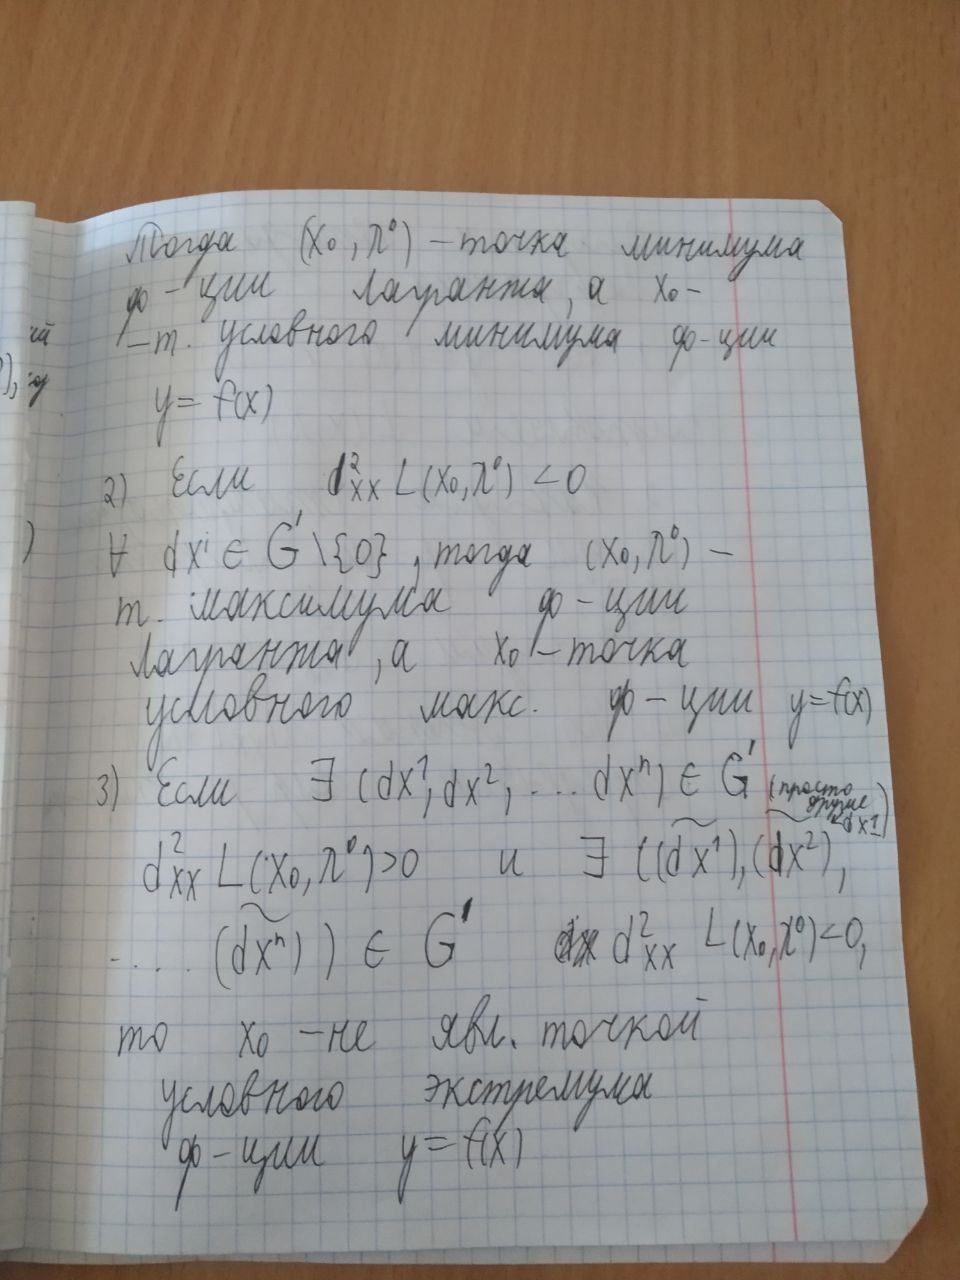 Тогда (x₀, λ⁰) – точка минимума
ф-ции Лагранжа, а x₀ –
– т. условного минимума ф-ции
y = f(x)
2) Если d²xx L(x₀, λ⁰) < 0
∀ dxⁱ ∈ G' \ {0}, тогда (x₀, λ⁰) –
т. максимума ф-ции
Лагранжа, а x₀ – точка
условного макс. ф-ции y=f(x)
3) Если ∃ (dx¹, dx², ... dxⁿ) ∈ G' (просто
другие
dx¹)
d²xx L(x₀, λ⁰) > 0 и ∃ ((d̃x¹), (d̃x²),
.... (d̃xⁿ)) ∈ G' d²xx L(x₀, λ⁰) < 0,
то x₀ – не явл. точкой
условного экстремума
ф-ции y = f(x)